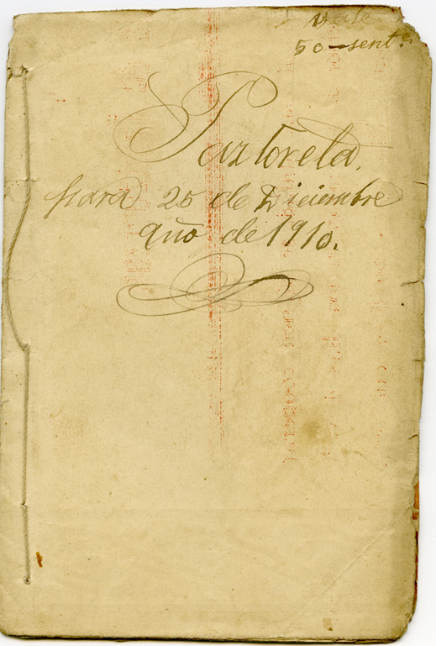 Vale
50 sent.
Paztorela.
para 25 de Diciembre
año de 1910.